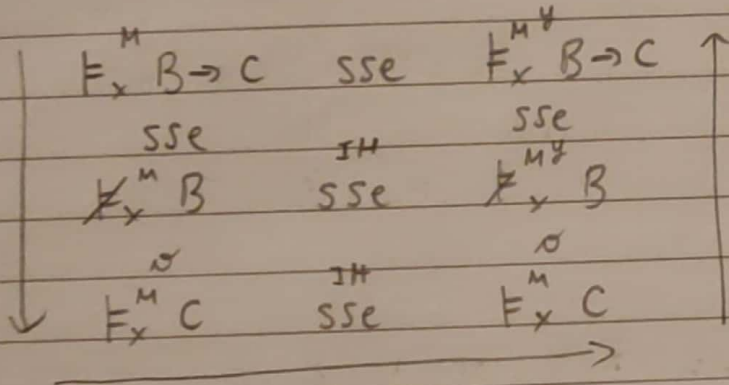 ⊨ₓᴹ B → C sse ⊨ₓᴹʸ B → C
sse sse
⊭ₓᴹ B IH sse ⊭ₓᴹʸ B
o o
⊨ₓᴹ C IH sse ⊨ₓᴹ C